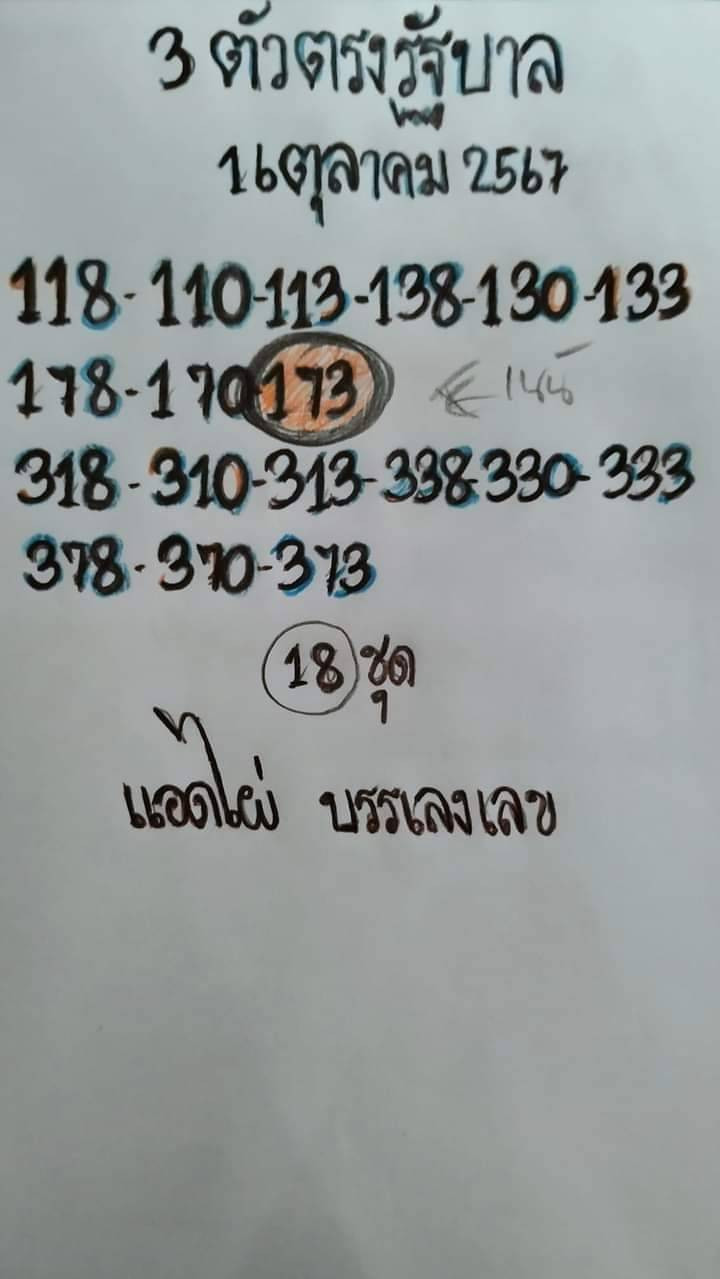 3 ตัวตรงรัฐบาล
16 ตุลาคม 2567
118-110-113-138-130-133
178-170-173 เน้น
318-310-313-338-330-333
378-370-373
18 ชุด
แอ๊ดไผ่ บรรเลงเลข